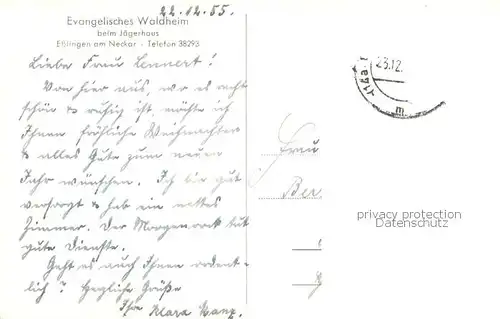 22.12.55.
Evangelisches Waldheim
beim Jägerhaus
Eßlingen am Neckar - Telefon 38293
Liebe Frau Lennert!
Von hier aus, wo es recht
schön & ruhig ist, möchte ich
Ihnen fröhliche Weihnachten
& alles Gute zum neuen
Jahr wünschen. Ich bin gut
versorgt & hab ein nettes
Zimmer. Der Morgenrock tut
gute Dienste.
Geht es auch Ihnen ordent-
lich? Herzliche Grüße
Ihre Klara Kanz.
23.12.
m
Frau
Ber
privacy protection
Datenschutz